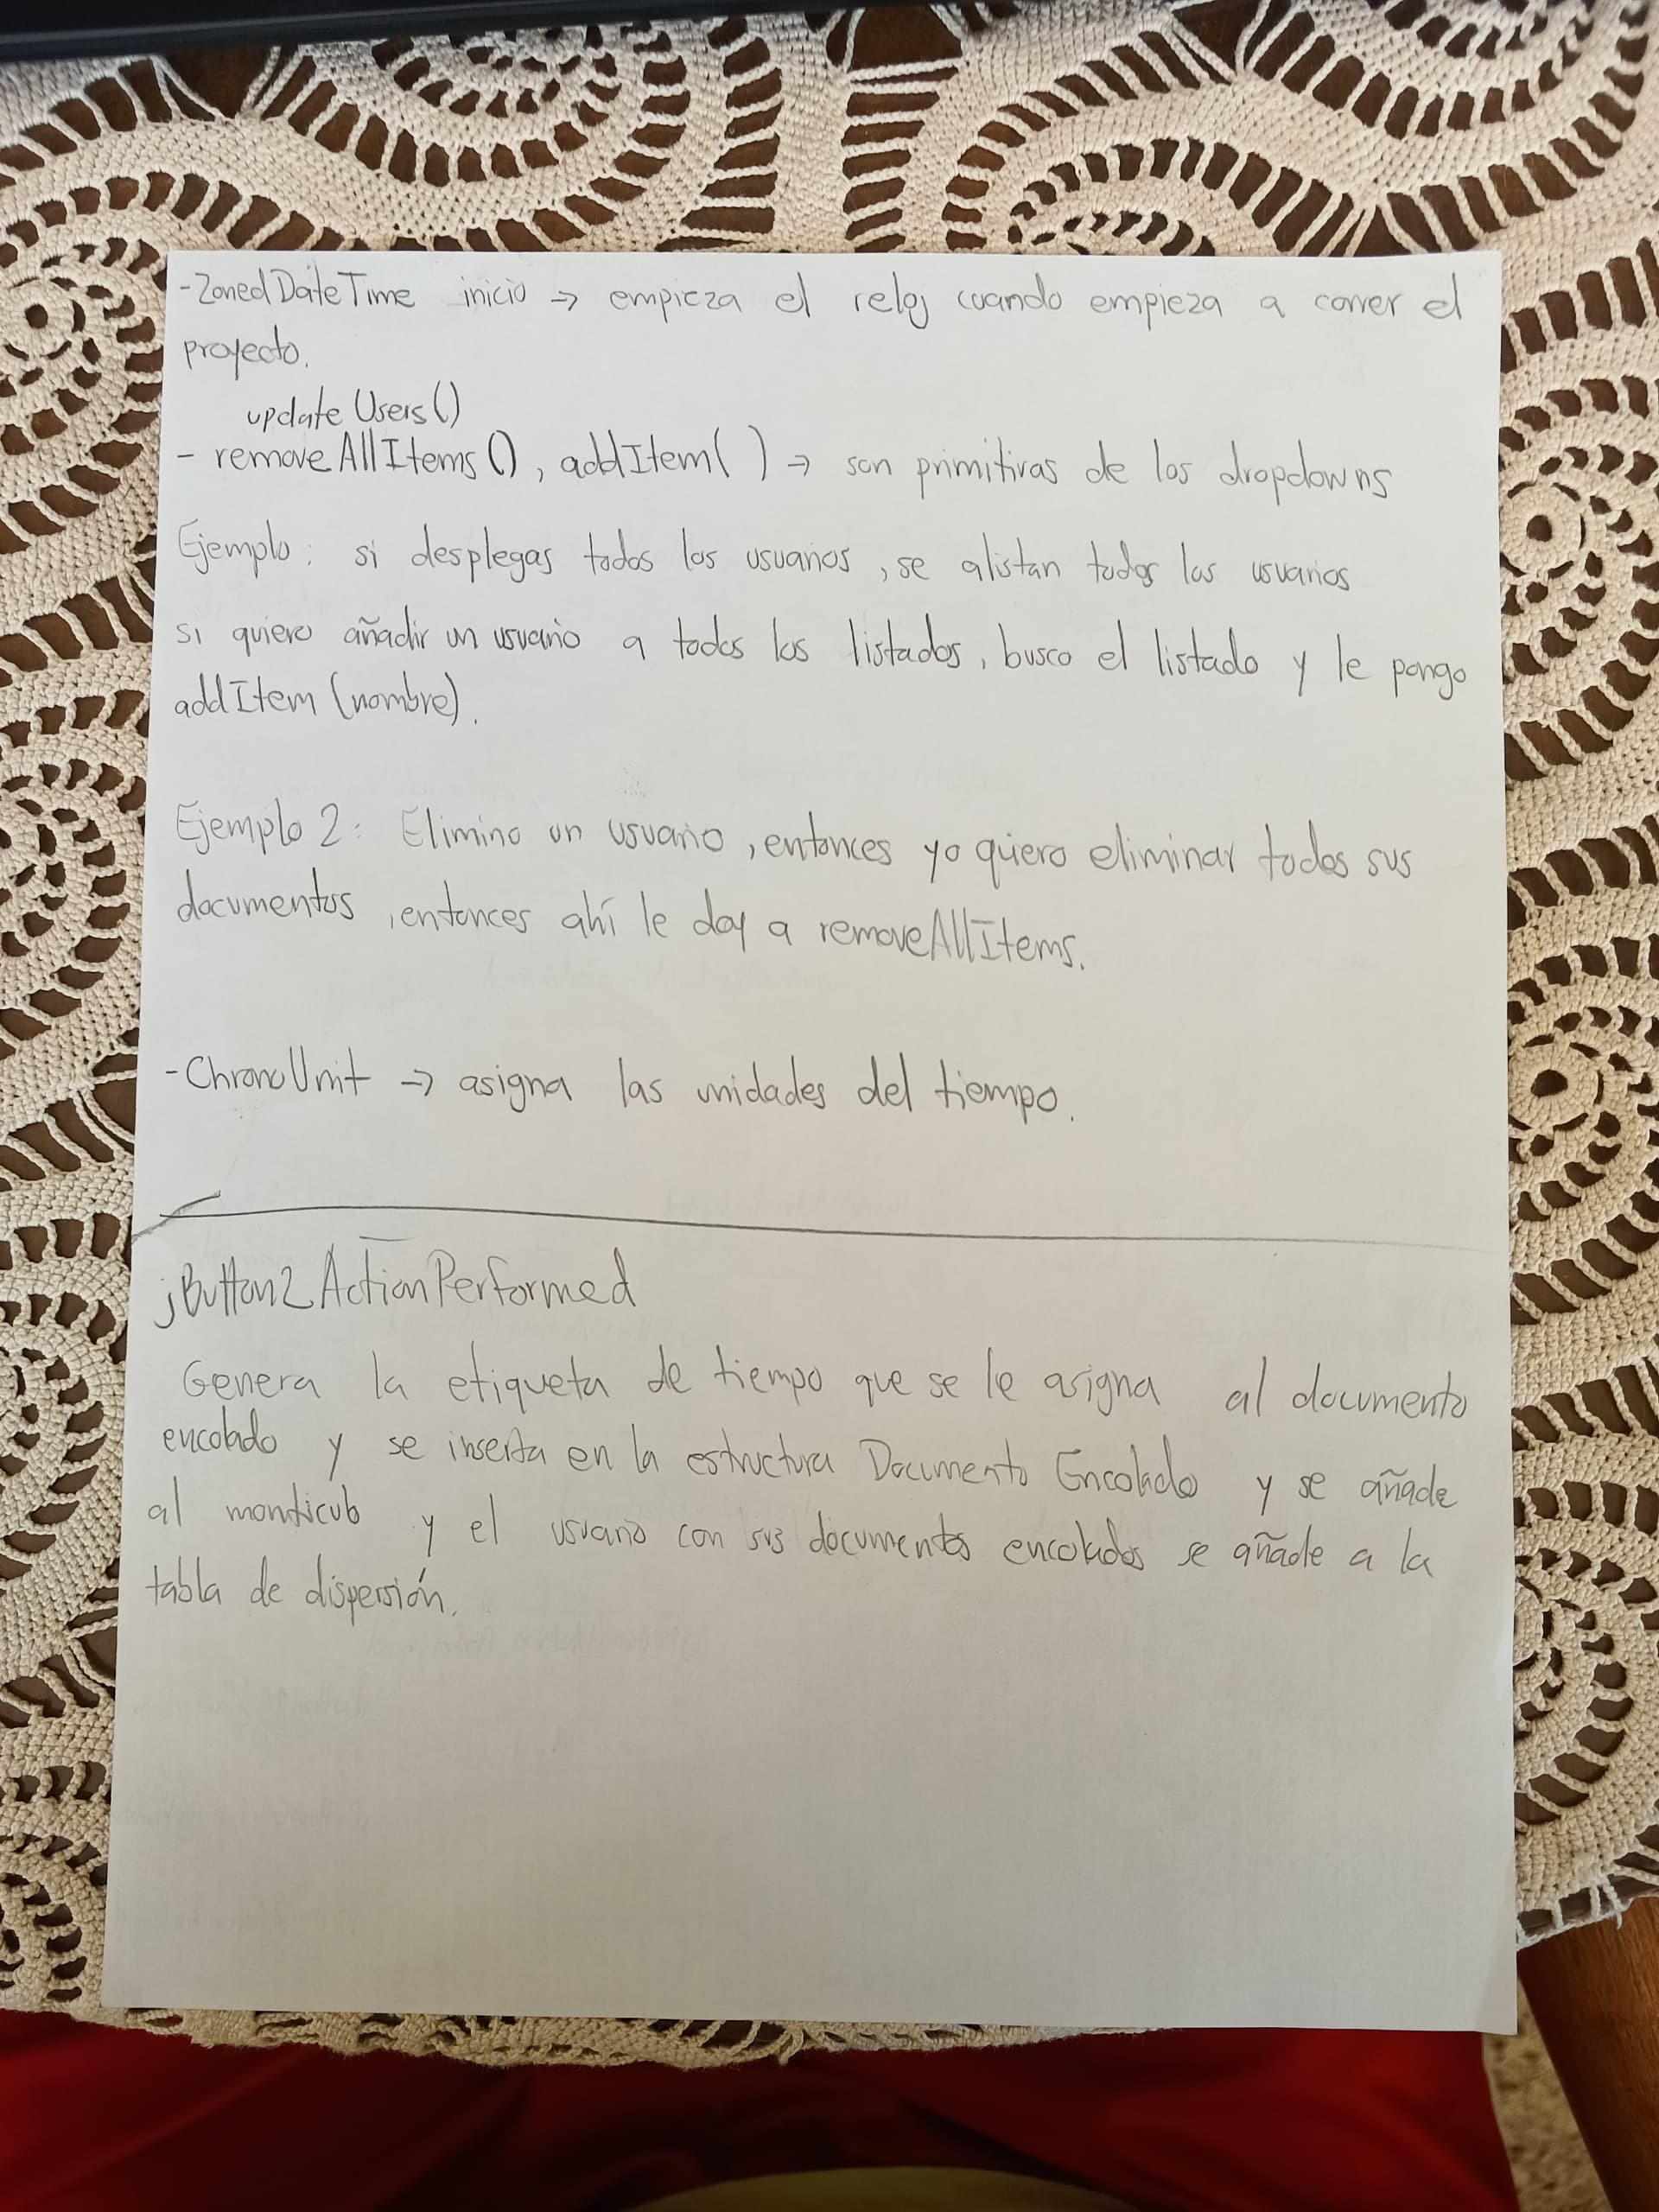 -ZonedDateTime inicio → empieza el reloj cuando empieza a correr el
proyecto.
updateUsers()
- removeAllItems(), addItem( ) → son primitivas de los dropdowns
Ejemplo: si desplegas todos los usuarios, se alistan todos los usuarios
si quiero añadir un usuario a todos los listados, busco el listado y le pongo
addItem (nombre).
Ejemplo 2: Elimino un usuario, entonces yo quiero eliminar todos sus
documentos, entonces ahí le doy a removeAllItems.
-ChronoUnit → asigna las unidades del tiempo.
jButton2ActionPerformed
Genera la etiqueta de tiempo que se le asigna al documento
encolado y se inserta en la estructura Documento Encolado y se añade
al montículo y el usuario con sus documentos encolados se añade a la
tabla de dispersión.